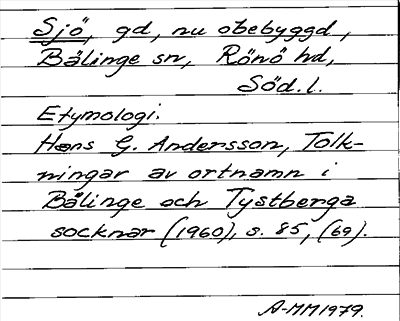 Sjö, gd, nu obebyggd,
Bälinge sn, Rönö hd,
Söd. l.
Etymologi.
Hans G. Andersson, Tolk-
ningar av ortnamn i
Bälinge och Tystberga
socknar (1960), s. 85, (69).
A-MM1979.